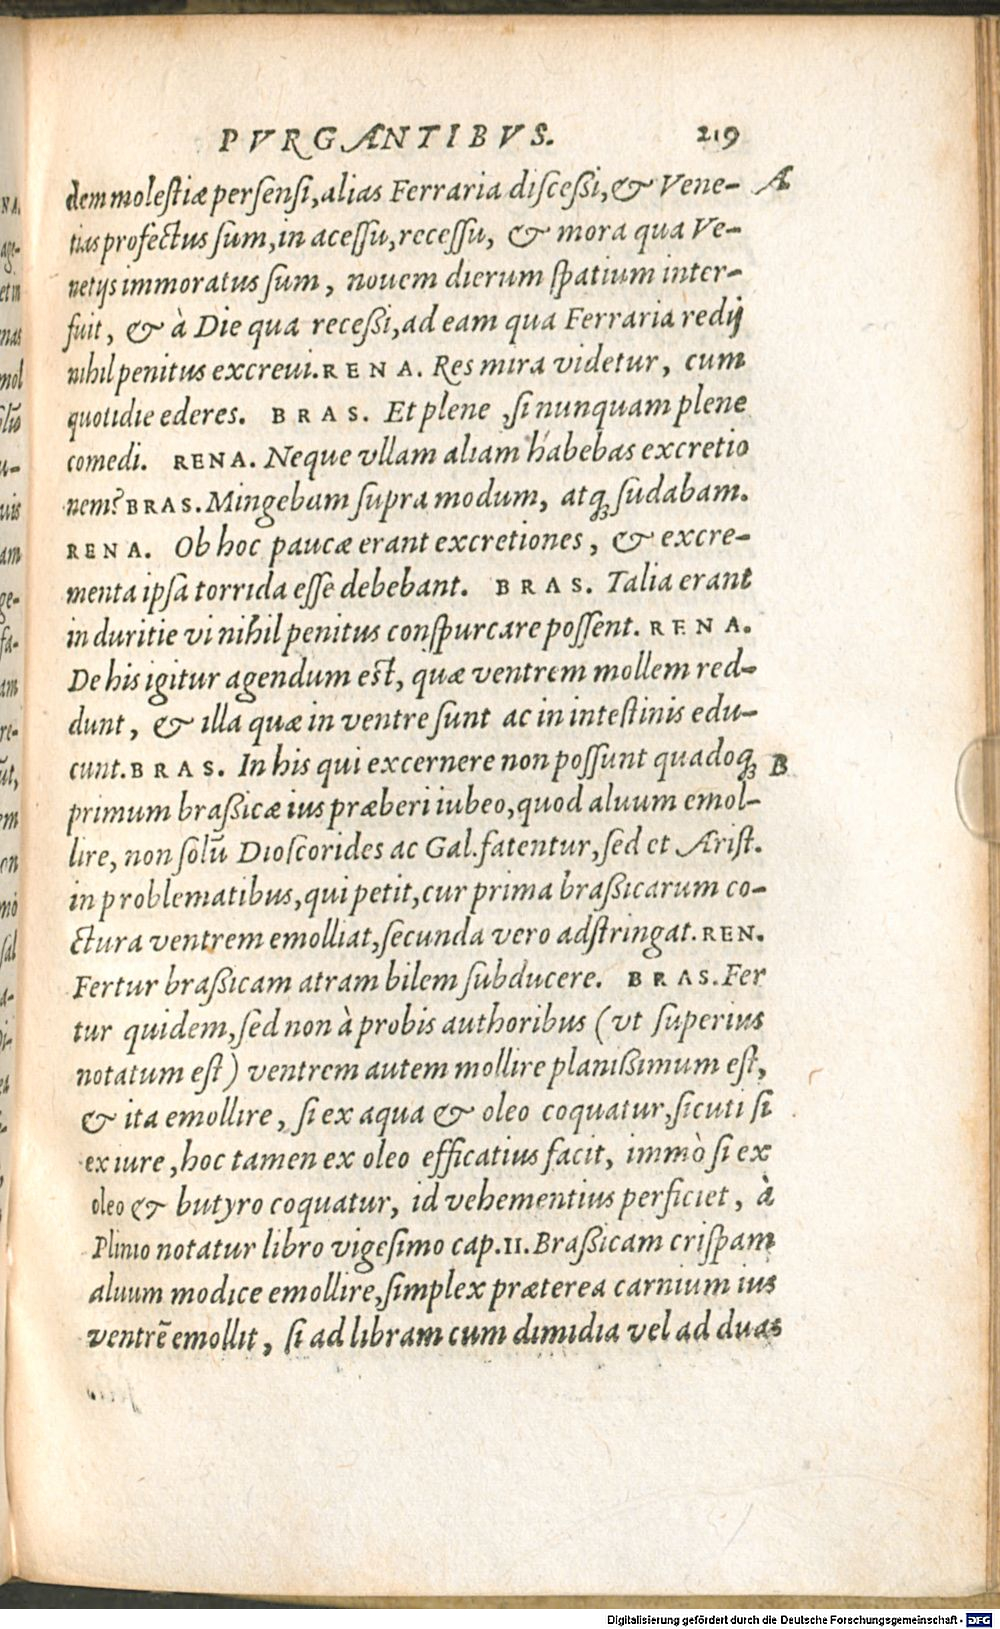 PVRGANTIBVS. 219
dem molestiæ persensi, alias Ferraria discessi, & Vene- A
tias profectus sum, in acessu, recessu, & mora qua Ve-
netijs immoratus sum, nouem dierum spatium inter-
fuit, & à Die qua recessi, ad eam qua Ferraria redij
nihil penitus excreui. RENA. Res mira videtur, cum
quotidie ederes. BRAS. Et plene, si nunquam plene
comedi. RENA. Neque vllam aliam habebas excretio
nem? BRAS. Mingebam supra modum, atq; sudabam.
RENA. Ob hoc paucæ erant excretiones, & excre-
menta ipsa torrida esse debebant. BRAS. Talia erant
in duritie vi nihil penitus conspurcare possent. RENA.
De his igitur agendum est, quæ ventrem mollem red-
dunt, & illa quæ in ventre sunt ac in intestinis edu-
cunt. BRAS. In his qui excernere non possunt quadoq; B
primum brassicæ ius præberi iubeo, quod aluum emol-
lire, non solū Dioscorides ac Gal. fatentur, sed et Arist.
in problematibus, qui petit, cur prima brassicarum co-
ctura ventrem emolliat, secunda vero adstringat. REN.
Fertur brassicam atram bilem subducere. BRAS. Fer
tur quidem, sed non à probis authoribus (vt superius
notatum est) ventrem autem mollire planissimum est,
& ita emollire, si ex aqua & oleo coquatur, sicuti si
ex iure, hoc tamen ex oleo efficatius facit, immò si ex
oleo & butyro coquatur, id vehementius perficiet, à
Plinio notatur libro vigesimo cap. 11. Brassicam crispam
aluum modice emollire, simplex præterea carnium ius
ventrē emollit, si ad libram cum dimidia vel ad duas
Digitalisierung gefördert durch die Deutsche Forschungsgemeinschaft - DFG